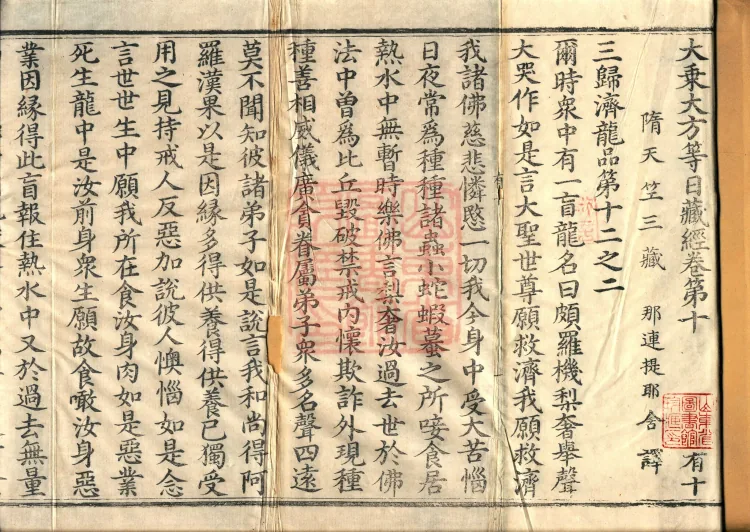 大乘大方等日藏經卷第十 有十
隋天竺三藏 那連提耶舍 譯
三歸濟龍品第十二之二
爾時衆中有一盲龍名曰頗羅機梨奢舉聲
大哭作如是言大聖世尊願救濟我願救濟
我諸佛慈悲憐愍一切我全身中受大苦惱
日夜常爲種種諸蟲小蛇蝦蟇之所唼食居
熱水中無暫時樂佛言梨奢汝過去世於佛
法中曽爲比丘毀破禁戒内懷欺詐外現種
種善相威儀廣貪眷屬弟子衆多名聲四遠
莫不聞知彼諸弟子如是説言我和尚得阿
羅漢果以是因縁多得供養得供養已獨受
用之見持戒人反惡加説彼人懊惱如是念
言世世生中願我所在食汝身肉如是惡業
死生龍中是汝前身衆生願故食噉汝身惡
業因縁得此盲報住熱水中又於過去無量
山東省
圖書館